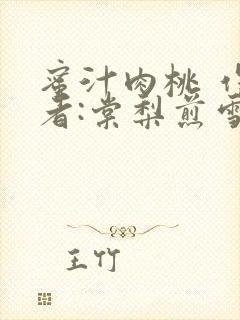 蜜汁肉桃 作
者:棠梨煎雪
王竹